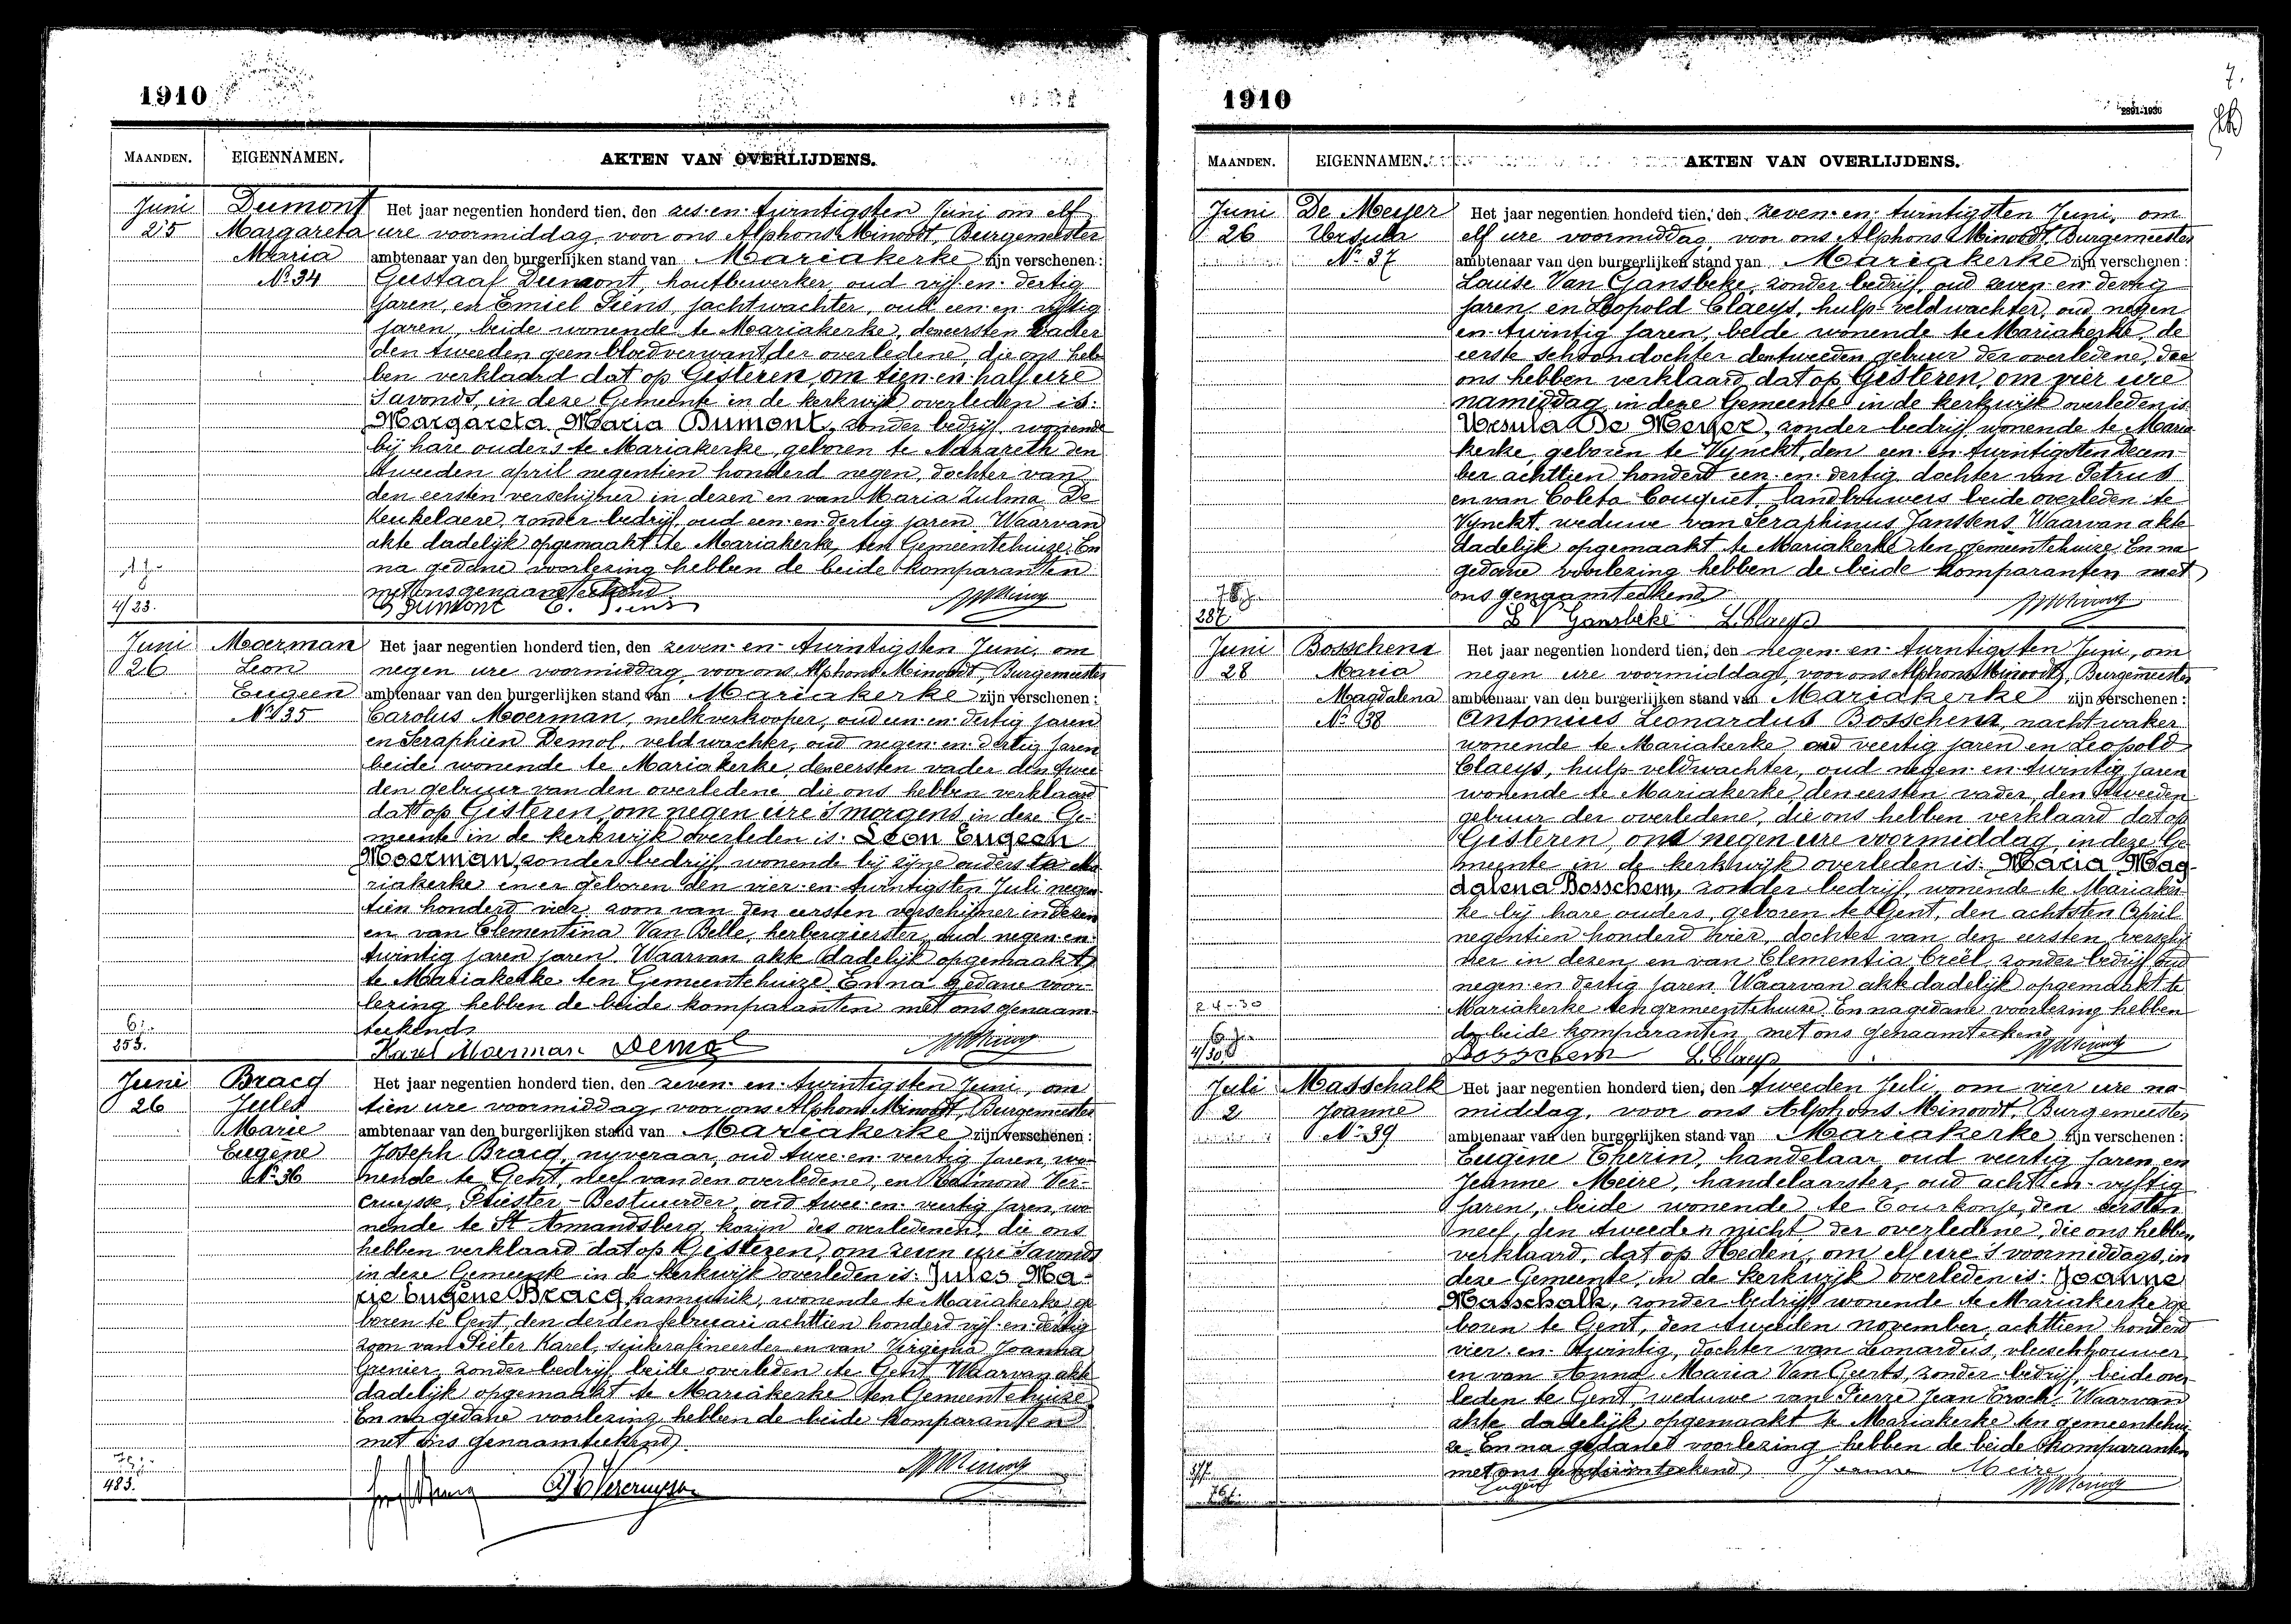 1910
MAANDEN. EIGENNAMEN. AKTEN VAN OVERLIJDENS.
Juni 25
Dumont
Margareta
Maria
No 34
Het jaar negentien honderd tien, den zes-en-twintigsten Juni om elf
ure voormiddag, voor ons Alphons Minoodt, Burgemeester
ambtenaar van den burgerlijken stand van Mariakerke zijn verschenen:
Gustaaf Dumont, houtbewerker, oud vijf-en-dertig
jaren, en Emiel Siens, jachtwachter, oud een-en-vijftig
jaren, beide wonende te Mariakerke, den eersten vader
den tweeden geen bloedverwant der overledene, die ons heb
ben verklaard dat op Gisteren, om tien-en-half ure
s'avonds, in deze Gemeente in de kerkwijk overleden is:
Margareta Maria Dumont, zonder bedrijf, wonende
bij hare ouders te Mariakerke, geboren te Nazareth den
tweeden april negentien honderd negen, dochter van
den eersten verschijner in dezen en van Maria Zulma De
Keukelaere, zonder bedrijf, oud een-en-dertig jaren. Waarvan
akte dadelijk opgemaakt te Mariakerke, ten Gemeentehuize. En
na gedane voorlezing hebben de beide komparanten
met ons genaamteekend.
4/23.
G Dumont E. Siens
Juni 26
Moerman
Leon
Eugeen
No 35
Het jaar negentien honderd tien, den zeven-en-twintigsten Juni, om
negen ure voormiddag, voor ons Alphons Minoodt, Burgemeester
ambtenaar van den burgerlijken stand van Mariakerke zijn verschenen:
Carolus Moerman, melkverkooper, oud een-en-dertig jaren
en Seraphien Demol, veldwachter, oud negen-en-dertig jaren
beide wonende te Mariakerke, den eersten vader den twee
den gebuur van den overledene, die ons hebben verklaard
dat op Gisteren, om negen ure s'morgens in deze Ge-
meente in de kerkwijk overleden is: Leon Eugeen
Moerman, zonder bedrijf, wonende bij zijne ouders te Ma
riakerke en er geboren den vier-en-twintigsten Juli negen
tien honderd vier, zoon van den eersten verschijner in dezen
en van Clementina Van Belle, herbergierster, oud negen-en
twintig jaren jaren. Waarvan akte dadelijk opgemaakt
te Mariakerke ten Gemeentehuize. En na gedane voor-
lezing hebben de beide komparanten met ons genaam
teekend.
6j.
255.
Karel Moerman Demol
Juni 26
Bracq
Jules
Marie
Eugène
No 36
Het jaar negentien honderd tien, den zeven-en-twintigsten Juni, om
tien ure voormiddag, voor ons Alphons Minoodt, Burgemeester
ambtenaar van den burgerlijken stand van Mariakerke zijn verschenen:
Joseph Bracq, nyveraar, oud twee-en-veertig jaren, wo-
nende te Gent, neef van den overledene, en Raimond Ver-
cruysse, Priester-Bestuurder, oud twee-en-veertig jaren, wo
nende te St Amandsberg, kozijn des overledenen, die ons
hebben verklaard dat op Gisteren, om zeven ure s'avonds
in deze Gemeente in de kerkwijk overleden is: Jules Ma-
rie Eugène Bracq, kannunik, wonende te Mariakerke, ge
boren te Gent, den derden februari achttien honderd vijf-en-dertig
zoon van Pieter Karel, suikerafineerder en van Virginia Joanna
Grenier, zonder bedrijf, beide overleden te Gent. Waarvan akte
dadelijk opgemaakt te Mariakerke ten Gemeentehuize
En na gedane voorlezing hebben de beide komparanten
met ons genaamteekend.
75j.
483.
R Vercruysse
7.
1910
2891-1936
MAANDEN. EIGENNAMEN. AKTEN VAN OVERLIJDENS.
Juni 26
De Meyer
Ursula
No 37
Het jaar negentien honderd tien, den zeven-en-twintigsten Juni, om
elf ure voormiddag, voor ons Alphons Minoodt, Burgemeester
ambtenaar van den burgerlijken stand van Mariakerke zijn verschenen:
Louise Van Gansbeke, zonder bedrijf, oud zeven-en-dertig
jaren, en Leopold Claeys, hulp-veldwachter, oud negen
en-twintig jaren, beide wonende te Mariakerke, de
eerste schoondochter den tweeden gebuur der overledene, die
ons hebben verklaard dat op Gisteren, om vier ure
namiddag in deze Gemeente in de kerkwijk overleden is
Ursula De Meyer, zonder bedrijf, wonende te Maria
kerke, geboren te Vynckt, den een-en-twintigsten Decem-
ber achttien honderd een-en-dertig dochter van Petrus
en van Coleta Couquiet, landbouwers beide overleden te
Vynckt, weduwe van Seraphinus Janssens. Waarvan akte
dadelijk opgemaakt te Mariakerke ten gemeentehuize. En na
gedane voorlezing hebben de beide komparanten met
ons genaamteekend.
78j.
287
L V Gansbeke L. Claeys
Juni 28
Bosschem
Maria
Magdalena
No 38
Het jaar negentien honderd tien, den negen-en-twintigsten Juni, om
negen ure voormiddag, voor ons Alphons Minoodt, Burgemeester
ambtenaar van den burgerlijken stand van Mariakerke zijn verschenen:
Antonius Leonardus Bosschem, nachtwaker
wonende te Mariakerke oud veertig jaren en Leopold
Claeys, hulp-veldwachter, oud negen-en-twintig jaren
wonende te Mariakerke den eersten vader, den tweeden
gebuur der overledene, die ons hebben verklaard dat op
Gisteren, om negen ure voormiddag, in deze Ge
meente in de kerkwijk overleden is: Maria Mag-
dalena Bosschem, zonder bedrijf, wonende te Mariaker
ke bij hare ouders, geboren te Gent, den achtsten April
negentien honderd vier, dochter van den eersten verschij
ner in dezen, en van Clementia Creël, zonder bedrijf oud
negen-en-dertig jaren. Waarvan akte dadelijk opgemaakt te
Mariakerke ten gemeentehuize. En na gedane voorlezing hebben
de beide komparanten met ons genaamteekend
24-30
6j.
4/30.
Bosschem L. Claeys
Juli 2
Masschalk
Joanne
No 39
Het jaar negentien honderd tien, den tweeden Juli, om vier ure na-
middag, voor ons Alphons Minoodt, Burgemeester
ambtenaar van den burgerlijken stand van Mariakerke zijn verschenen:
Eugène Therin, handelaar, oud veertig jaren, en
Jeanne Meire, handelaarster, oud acht-en-vijftig
jaren, beide wonende te Tourkonje, den eersten
neef, den tweeden nicht der overledene, die ons hebben
verklaard, dat op Heden, om elf ure 's voormiddags, in
deze Gemeente, in de kerkwijk overleden is: Joanne
Masschalk, zonder bedrijf, wonende te Mariakerke, ge
boren te Gent, den tweeden november, achttien honderd
vier-en-twintig, dochter van Leonardus, vleeschhouwer
en van Anna Maria Van Geerts, zonder bedrijf, beide over
leden te Gent, weduwe van Pierre Jean Trock. Waarvan
akte dadelijk opgemaakt te Mariakerke ten gemeentehui
ze. En na gedanet voorlezing hebben de beide komparanten
met ons genaamteekend Jeanne Meire
377